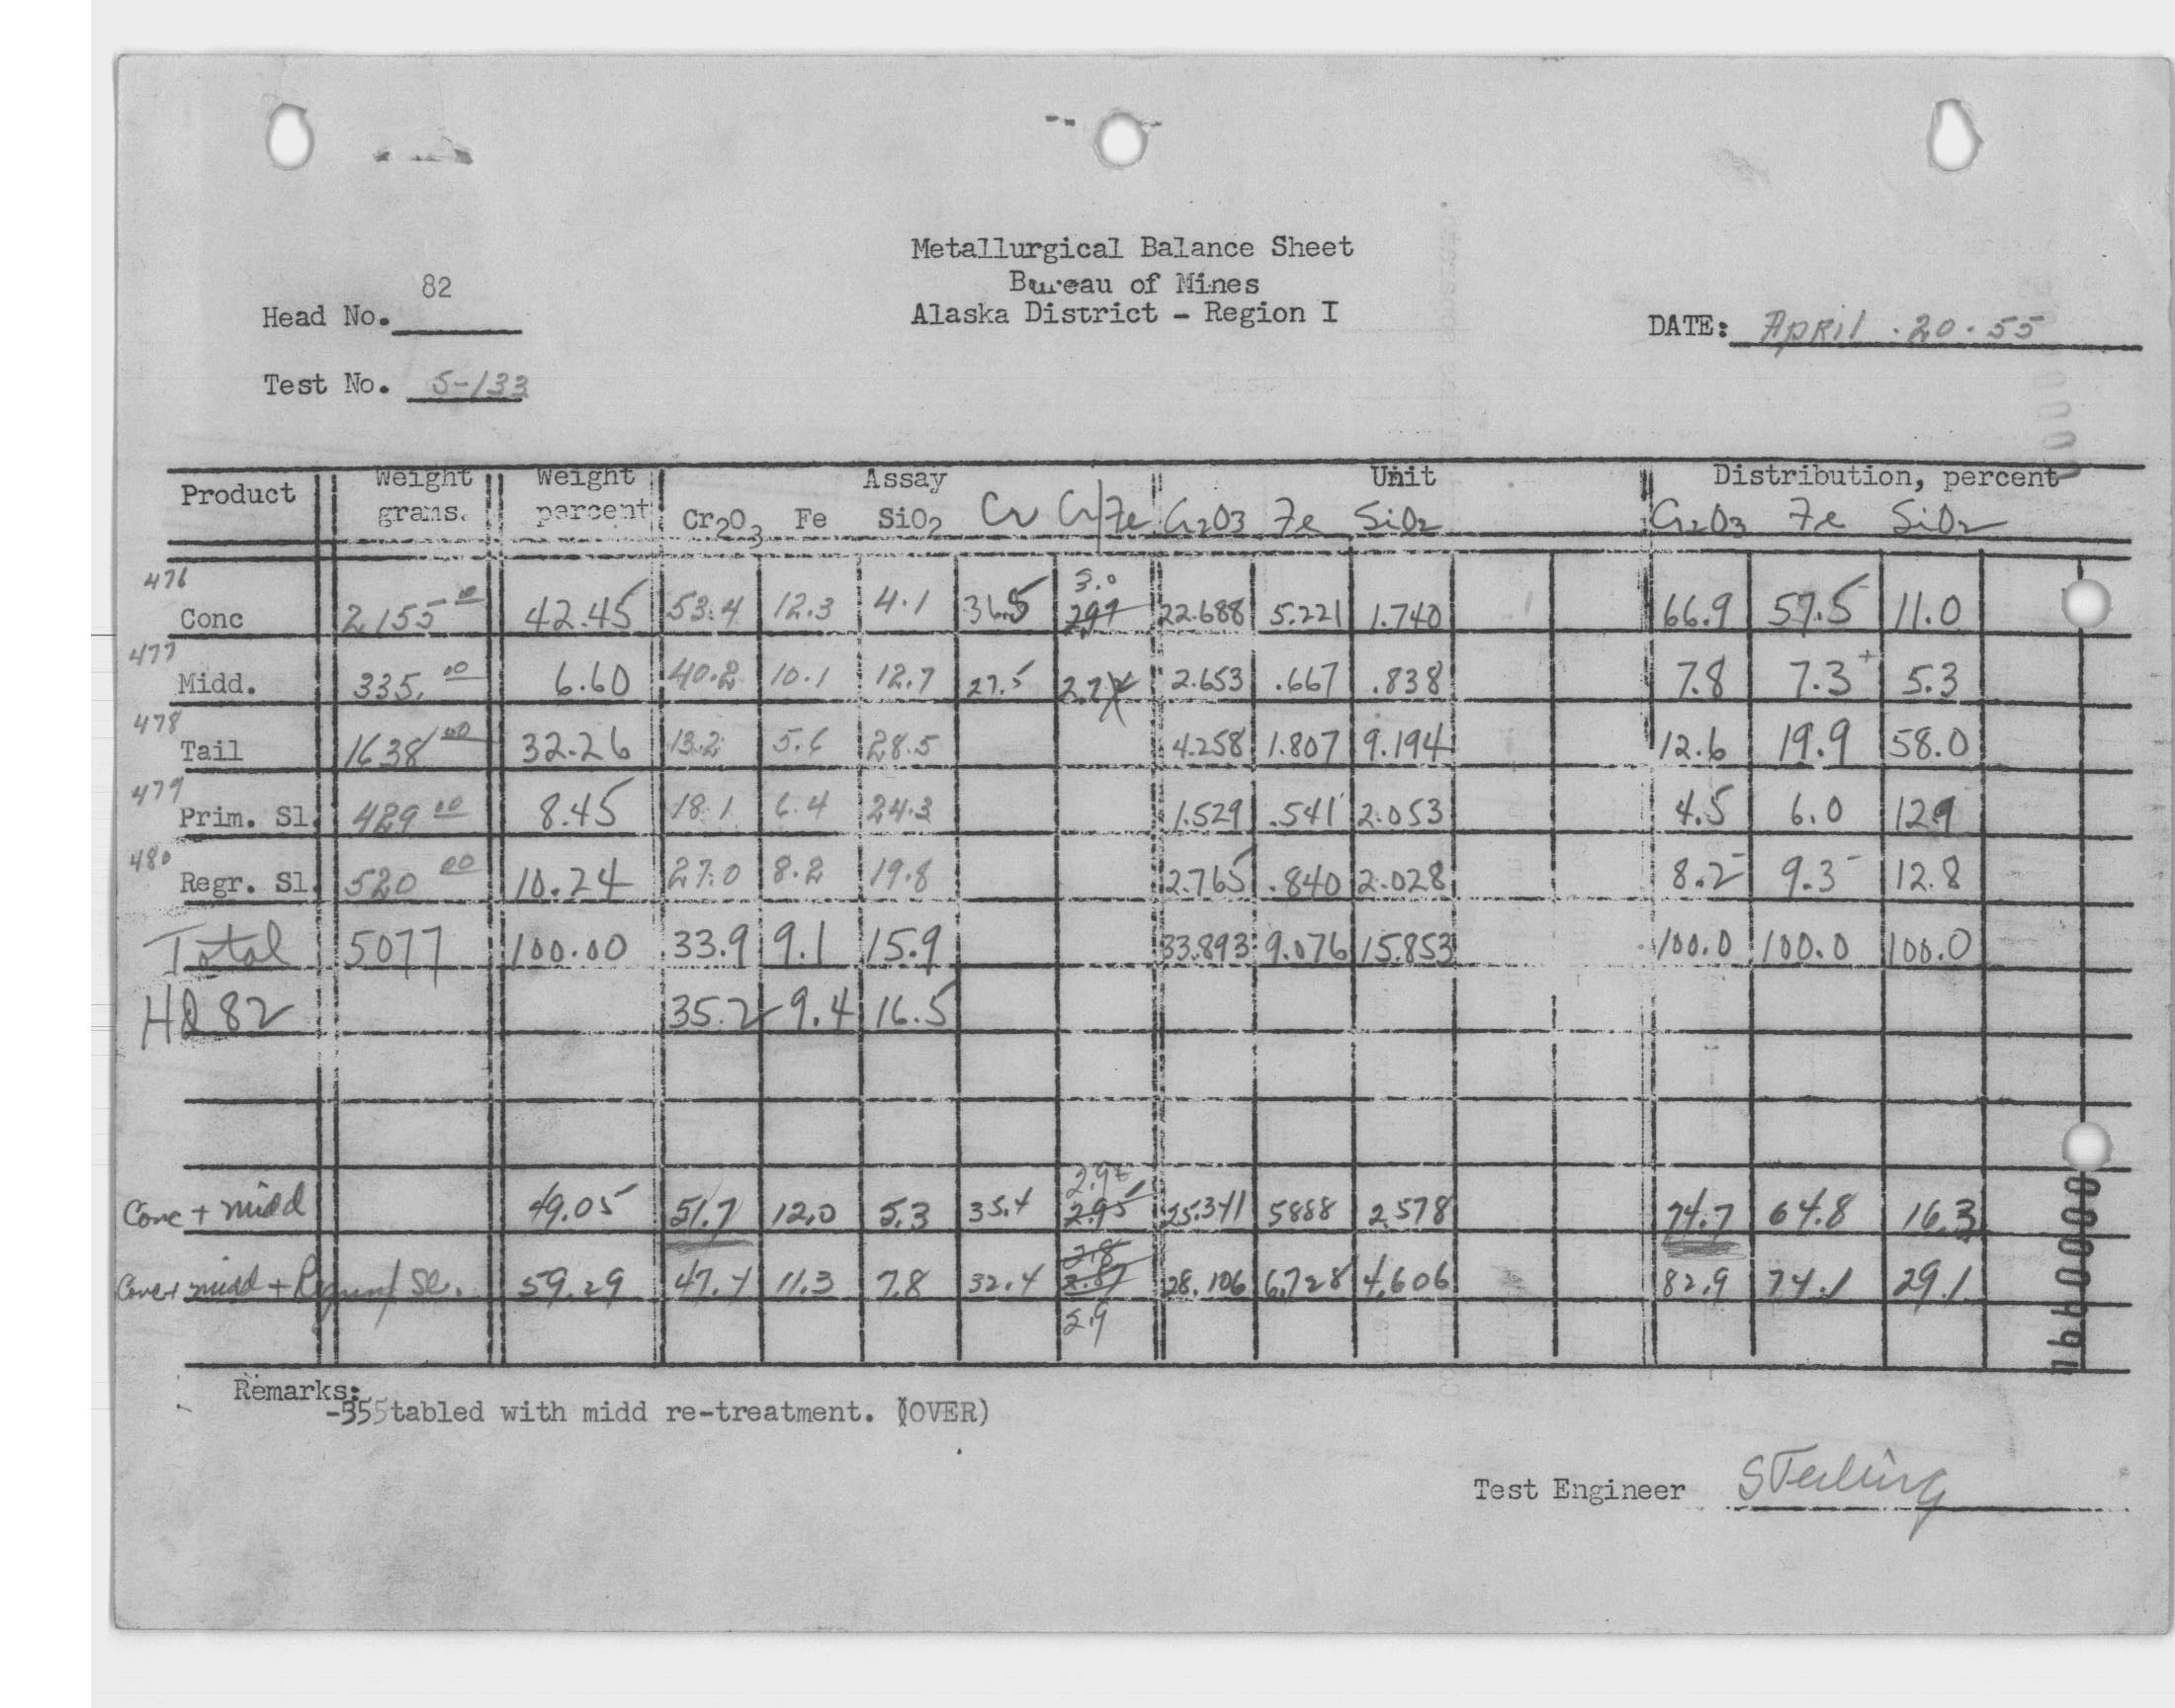 Metallurgical Balance Sheet
Bureau of Mines
Alaska District - Region I
Head No. 82
DATE: April . 20 . 55
Test No. 5-133
Product Weight grams. Weight percent Assay Unit Distribution, percent
Cr2O3 Fe SiO2 Cr Cr/Fe Cr2O3 Fe SiO2 Cr2O3 Fe SiO2
476 3.0
Conc 2155 00 42.45 53.4 12.3 4.1 36.5 2.97 22.688 5.221 1.740 66.9 57.5- 11.0
477
Midd. 335. 00 6.60 40.2 10.1 12.7 27.5 2.7 2.653 .667 .838 7.8 7.3+ 5.3
478
Tail 1638 00 32.26 13.2 5.6 28.5 4.258 1.807 9.194 12.6 19.9 58.0
479
Prim. Sl. 429 00 8.45 18.1 6.4 24.3 1.529 .541 2.053 4.5 6.0 12.9
480
Regr. Sl. 520 00 10.24 27.0 8.2 19.8 2.765 .840 2.028 8.2- 9.3- 12.8
Total 5077 100.00 33.9 9.1 15.9 33.893 9.076 15.853 100.0 100.0 100.0
HD 82 35.2 9.4 16.5
2.9+
Conc + midd 49.05 51.7 12.0 5.3 35.4 2.95 25.341 5888 2.578 74.7 64.8 16.3
2.8
Conc + midd + Sl. 59.29 47.4 11.3 7.8 32.4 2.87 28.106 6.728 4.606 82.9 74.1 29.1
2.9
Remarks:
-35 tabled with midd re-treatment. (OVER)
Test Engineer Sterling